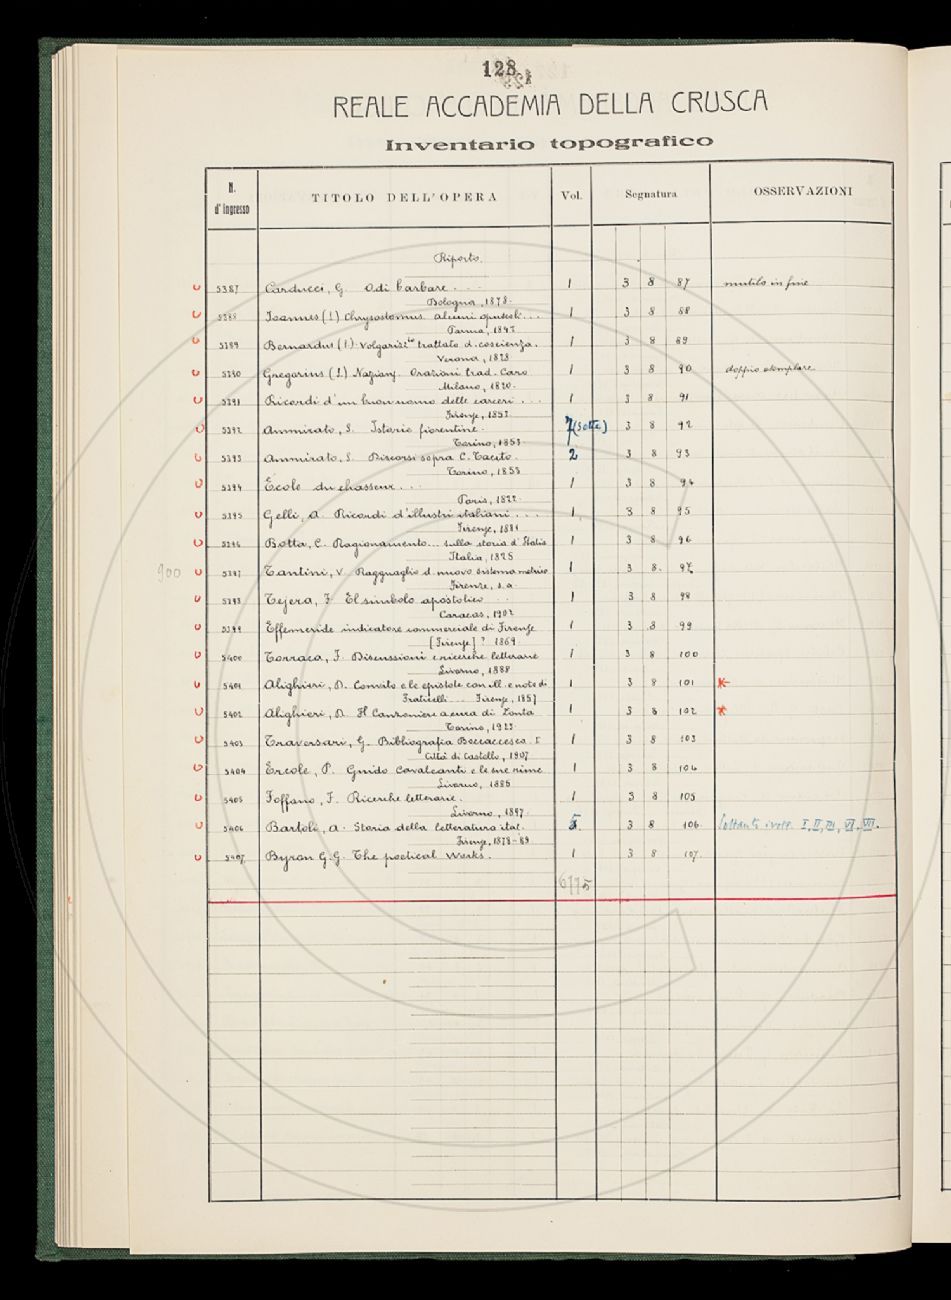 128
REALE ACCADEMIA DELLA CRUSCA
Inventario topografico
N. d'Ingresso TITOLO DELL'OPERA Vol. Segnatura OSSERVAZIONI
Riporto
5387 Carducci, G. Odi barbare . . . 1 3 8 87 mutilo in fine
Bologna, 1878.
5388 Joannes (S.) Chrysostomus. alcuni opuscoli . . . 1 3 8 88
Parma, 1843
5389 Bernardus (S.) Volgarizz.to trattato d. coscienza. 1 3 8 89
Verona, 1828
5390 Gregorius (S.) Nazianz. Orazioni trad. Caro 1 3 8 90 doppio esemplare
Milano, 1820.
5391 Ricordi d'un buon uomo delle carceri . . . 1 3 8 91
Firenze, 1853
5392 Ammirato, S. Istorie fiorentine. 7 (sette) 3 8 92
Torino, 1853.
5393 Ammirato, S. Discorsi sopra C. Tacito. 2 3 8 93
Torino, 1853
5394 École du chasseur . . . 1 3 8 94
Paris, 1822.
5395 Gelli, A. Ricordi d'illustri italiani . . . 1 3 8 95
Firenze, 1881
5396 Botta, C. Ragionamento... sulla storia d'Italia 1 3 8 96
Italia, 1825
900 5397 Tantini, V. Ragguaglio d. nuovo sistema metrico 1 3 8. 97
Firenze, s.a.
5398 Tejera, F. El simbolo apostolico . . . 1 3 8 98
Caracas, 1902
5399 Effemeride indicatore commerciale di Firenze 1 3 8 99
[Firenze] ? 1869.
5400 Torraca, F. Discussioni e ricerche letterarie 1 3 8 100
Livorno, 1888
5401 Alighieri, D. Convito e le epistole con ill. e note di 1 3 8 101
Fraticelli . . . Firenze, 1857
5402 Alighieri, D. Il Canzoniere a cura di Zonta 1 3 8 102
Torino, 1923.
5403 Traversari, G. Bibliografia Boccaccesca. I 1 3 8 103
Città di Castello, 1907
5404 Ercole, P. Guido Cavalcanti e le sue rime 1 3 8 104
Livorno, 1885
5405 Foffano, F. Ricerche letterarie. 1 3 8 105
Livorno, 1897.
5406 Bartoli, A. Storia della letteratura ital. 5 3 8 106. soltanto i voll. I, II, III, VI, VII.
Firenze, 1878-89
5407 Byron G.G. The poetical Works. 1 3 8 107.
6175